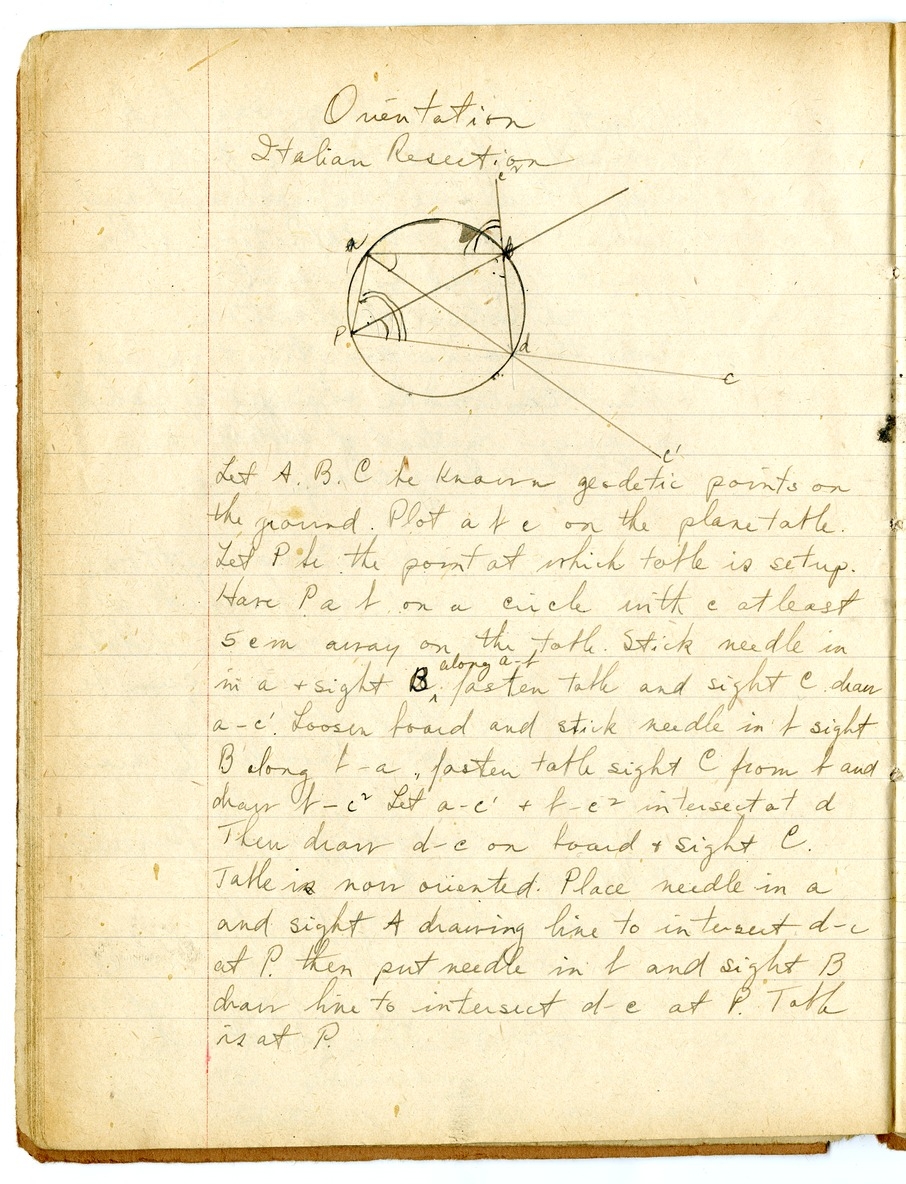 Orientation
Italian Resection
c²
a
b
P
d
c
c'
Let A. B. C be Known geodetic points on
the ground. Plot a b c on the planetable.
Let P be the point at which table is setup.
Have P a b on a circle with c atleast
5 cm away on the table. Stick needle in
along a-b
in a + sight B. fasten table and sight C draw
a-c'. Loosen board and stick needle in b sight
B along b-a, fasten table sight C from b and
draw b-c² Let a-c' + b-c² intersect at d
Then draw d-c on board + sight C.
Table is now oriented. Place needle in a
and sight A drawing line to intersect d-c
at P. then put needle in b and sight B
draw line to intersect d-c at P. Table
is at P.